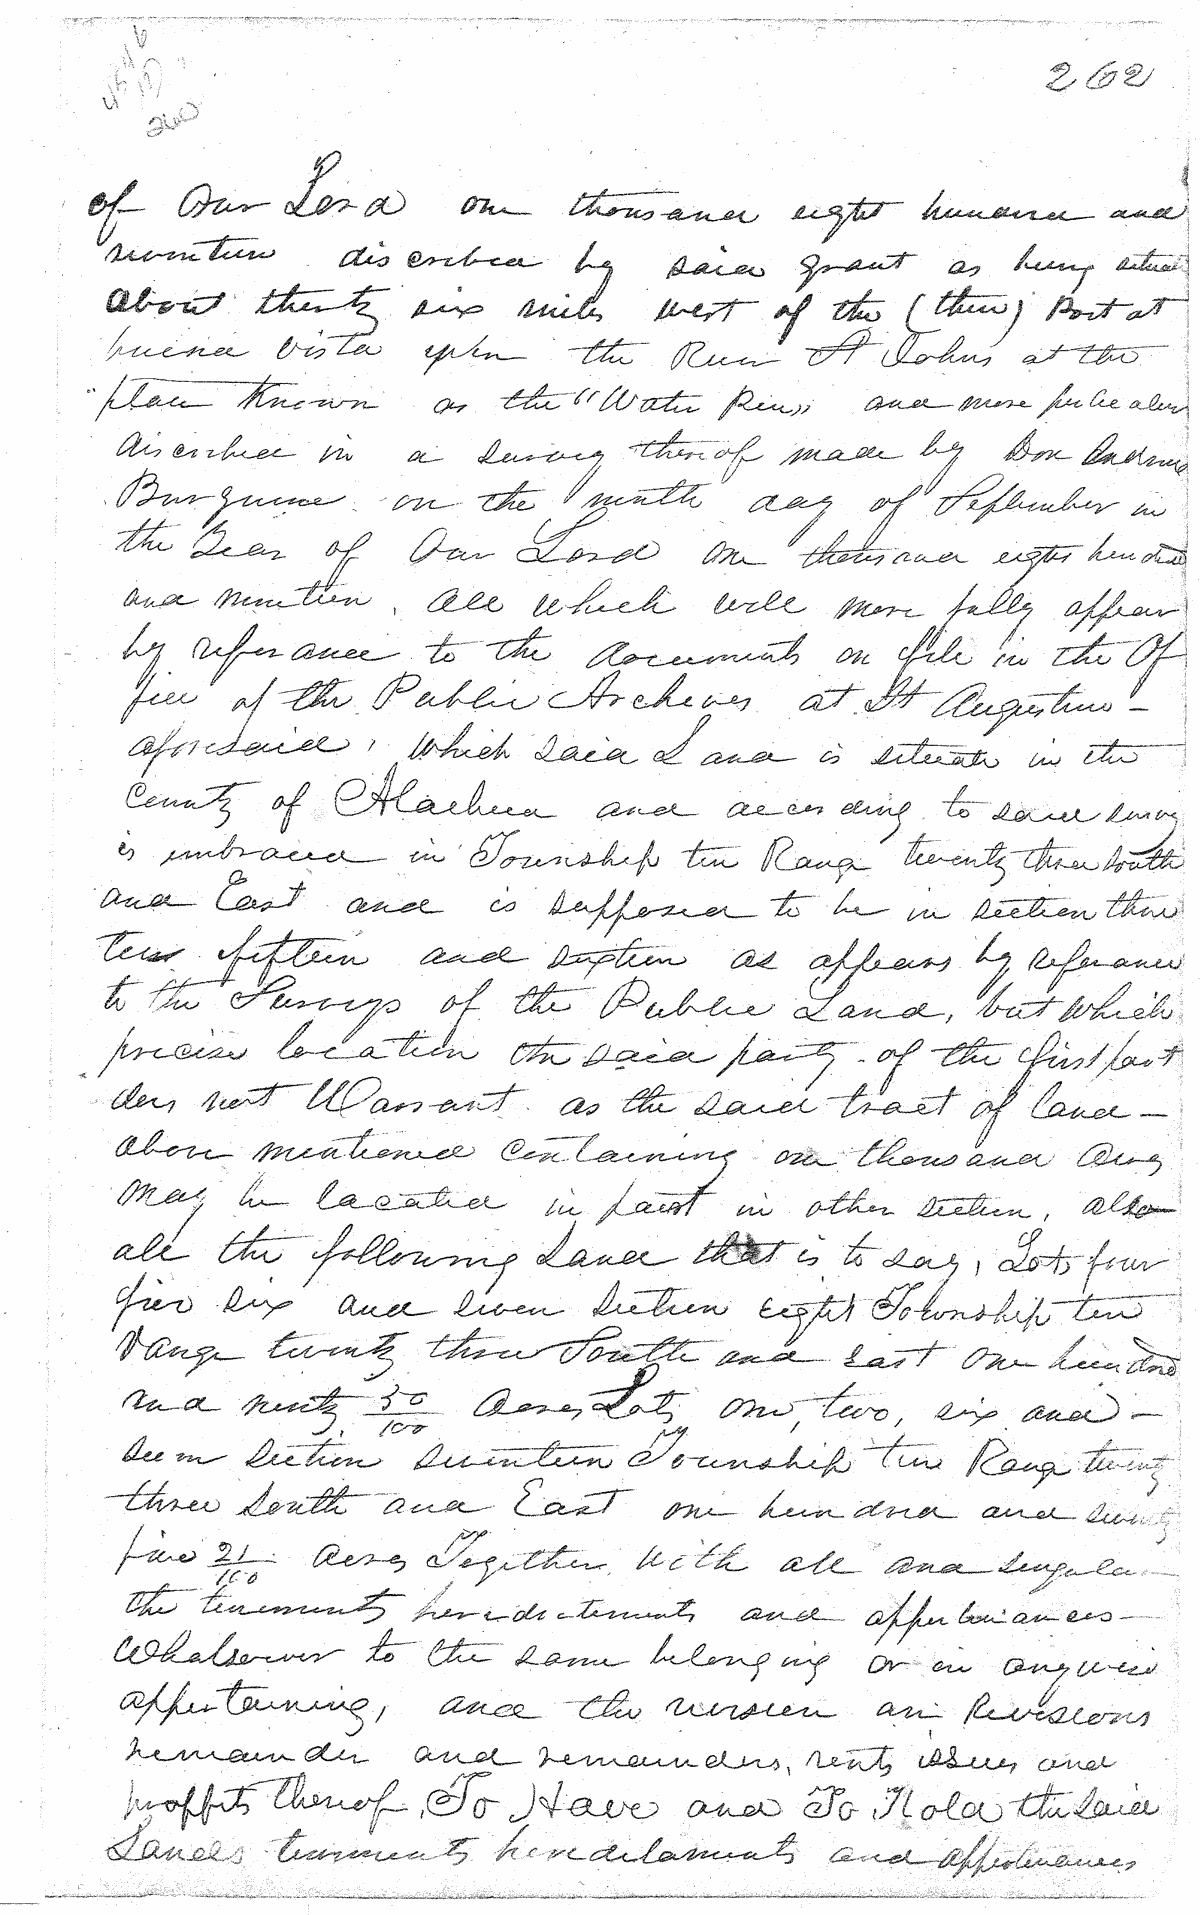 262
of Our Lord one thousand eight hundred and
nineteen discribed by said grant as being situat
about thirty six miles west of the (then) Post at
buena vista upon the River St Johns at the
place Known as the "Water Run" and more perticalar
discribed in a survey thereof made by Don Andrew
Burgume on the ninth day of September in
the Year of Our Lord one thousand eight hundred
and nineteen, all which will more fully appear
by referance to the documents on file in the Of
fice of the Public Archives at St Augustine -
aforesaid, which said Land is situate in the
County of Alachua and according to said survey
is embraced in Township ten Range twenty three South
and East and is supposed to be in section thir
teen fifteen and sixteen as appears by referance
to the Surveys of the Public Land, but which
precise location the said party of the first part
does not Warrant as the said tract of land -
above mentioned containing one thousand Acres
may be located in part in other section, also
all the following Land that is to say, Lots four
five six and seven section eight Township ten
Range twenty three South and East One hundred
and ninty 30/100 Acres Lots one, two, six and -
seven section seventeen Township ten Range twenty
three South and East one hundred and seventy
five 21/100 Acres Together with all and singular
the tenements hereditements and appertainances -
Whatsoever to the same belonging or in anywise
appertaining, and the reversion and Revisions
remainder and remainders, rents issues and
proffits thereof, To Have and To Hold the said
Lands tenements hereditaments and appertenances